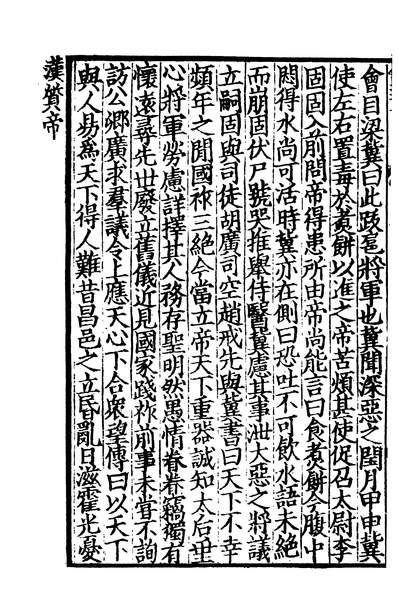 會目梁冀曰此跋扈將軍也冀聞深惡之閏月甲申冀
使左右置毒於煮餅以進之帝苦煩甚使促召太尉李
固固入前問帝得患所由帝尚能言曰食煮餅今腹中
悶得水尚可活時冀亦在側曰恐吐不可飲水語未絕
而崩固伏尸號哭推舉侍醫冀慮其事泄大惡之將議
立嗣固與司徒胡廣司空趙戒先與冀書曰天下不幸
頻年之間國祚三絕今當立帝天下重器誠知太后垂
心將軍勞慮詳擇其人務存聖明然愚情眷眷竊獨有
懷遠尋先世廢立舊儀近見國家踐祚前事未甞不詢
訪公卿廣求羣議令上應天心下合衆望傳曰以天下
與人易為天下得人難昔昌邑之立昏亂日滋霍光憂
漢質帝